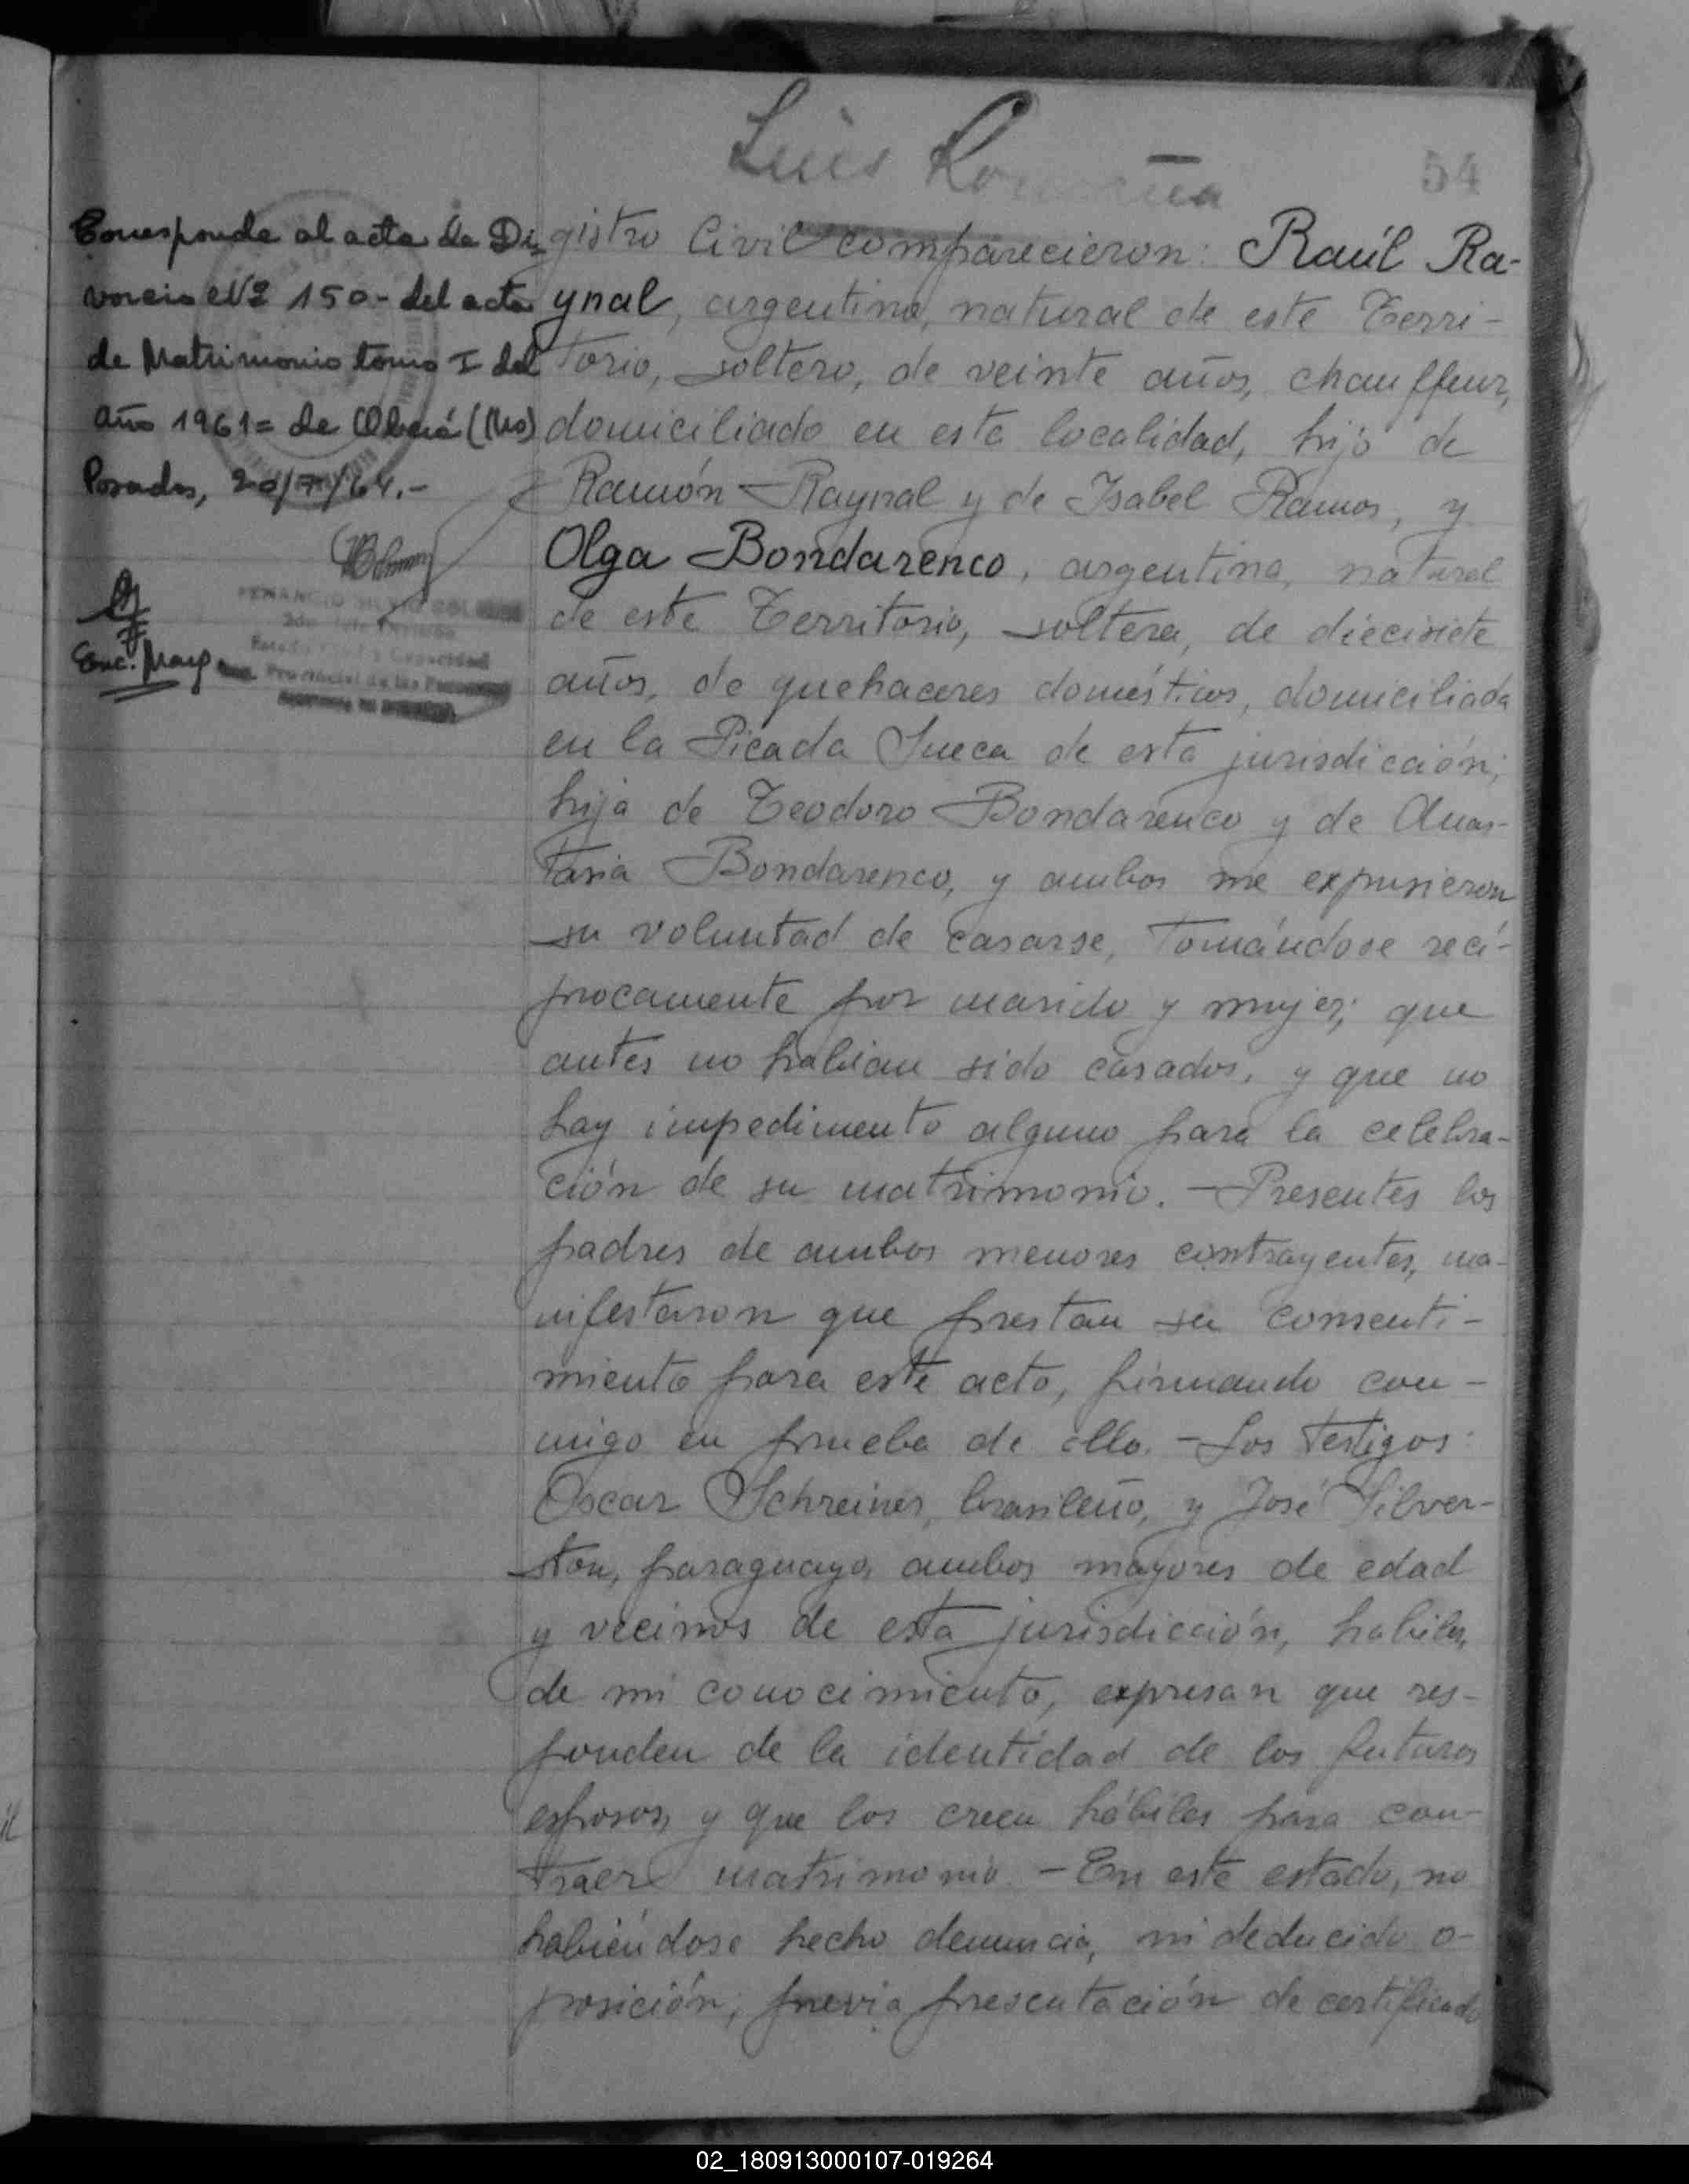 Luis
54
Corresponde al acta de Di-
vorcio Nº 150- del acta
de Matrimonio tomo I del
año 1961= de Oberá (Ms)
Posadas, 20/7/64.-
Enc. Mayp
gistro Civil comparecieron: Raúl Ra-
ynal, argentino, natural de este Terri-
torio, soltero, de veinte años, chauffeur,
domiciliado en esta localidad, hijo de
Ramón Raynal y de Isabel Ramos, y
Olga Bondarenco, argentina, natural
de este Territorio, soltera, de diecisiete
años, de quehaceres domésticos, domiciliada
en la Picada Sueca de esta jurisdicción;
hija de Teodoro Bondarenco y de Anas-
tasia Bondarenco, y ambos me expusieron
su voluntad de casarse, tomándose recí-
procamente por marido y mujer; que
antes no habían sido casados, y que no
hay impedimento alguno para la celebra-
ción de su matrimonio. - Presentes los
padres de ambos menores contrayentes, ma-
nifestaron que prestan su consenti-
miento para este acto, firmando con-
migo en prueba de ello. - Los testigos:
Oscar Schreiner, brasileño, y José Silver-
ston, paraguayo, ambos mayores de edad
y vecinos de esta jurisdicción, habiles,
de mi conocimiento, expresan que res-
ponden de la identidad de los futuros
esposos, y que los creen hábiles para con-
traer matrimonio. - En este estado, no
habiéndose hecho denuncia, ni deducido o-
posición, previa presentación de certificado
02_180913000107-019264